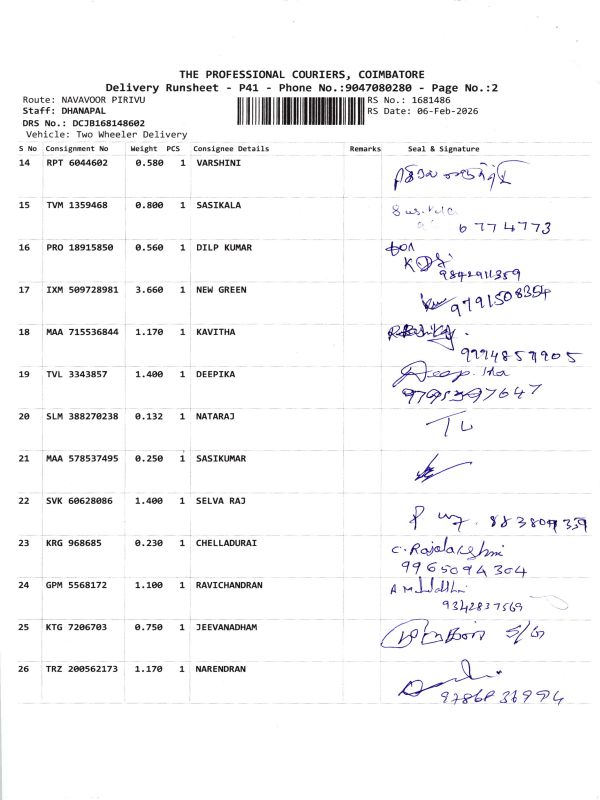 THE PROFESSIONAL COURIERS, COIMBATORE
Delivery Runsheet - P41 - Phone No.:9047080280 - Page No.:2
Route: NAVAVOOR PIRIVU RS No.: 1681486
Staff: DHANAPAL RS Date: 06-Feb-2026
DRS No.: DCJB168148602
Vehicle: Two Wheeler Delivery
S No Consignment No Weight PCS Consignee Details Remarks Seal & Signature
14 RPT 6044602 0.580 1 VARSHINI
15 TVM 1359468 0.800 1 SASIKALA
6774773
16 PRO 18915850 0.560 1 DILP KUMAR
9842911359
17 IXM 509728981 3.660 1 NEW GREEN
9791508354
18 MAA 715536844 1.170 1 KAVITHA
19 TVL 3343857 1.400 1 DEEPIKA
20 SLM 388270238 0.132 1 NATARAJ
21 MAA 578537495 0.250 1 SASIKUMAR
22 SVK 60628086 1.400 1 SELVA RAJ
23 KRG 968685 0.230 1 CHELLADURAI
C. Rajalakshmi
9965094304
24 GPM 5568172 1.100 1 RAVICHANDRAN
9342837569
25 KTG 7206703 0.750 1 JEEVANADHAM
S/G
26 TRZ 200562173 1.170 1 NARENDRAN